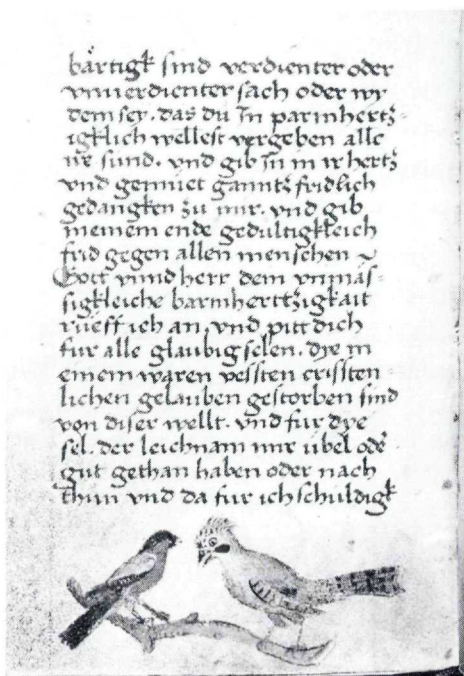 bärtigk sind verdienter oder
vnuerdienter sach oder wy
dem sey. das du in parmhertz-
igklich wellest vergeben alle
ire sund. vnd gib in in ir hertz
vnd gemuet ganntz fridlich
gedangken zu mir. vnd gib
meinem ende gedultigkleich
frid gegen allen menschen ~
Gott vnnd herr dem vnmäs-
sigkleiche barmherttzigkait
rueff ich an, vnd pitt dich
fur alle glaubig selen. dye in
einem waren vessten crissten
lichen gelauben gestorben sind
von diser wellt. vnd fur dye
sel. der leichnam mir ubel oder
gut gethan haben oder nach
thun vnd da fur ich schuldigk